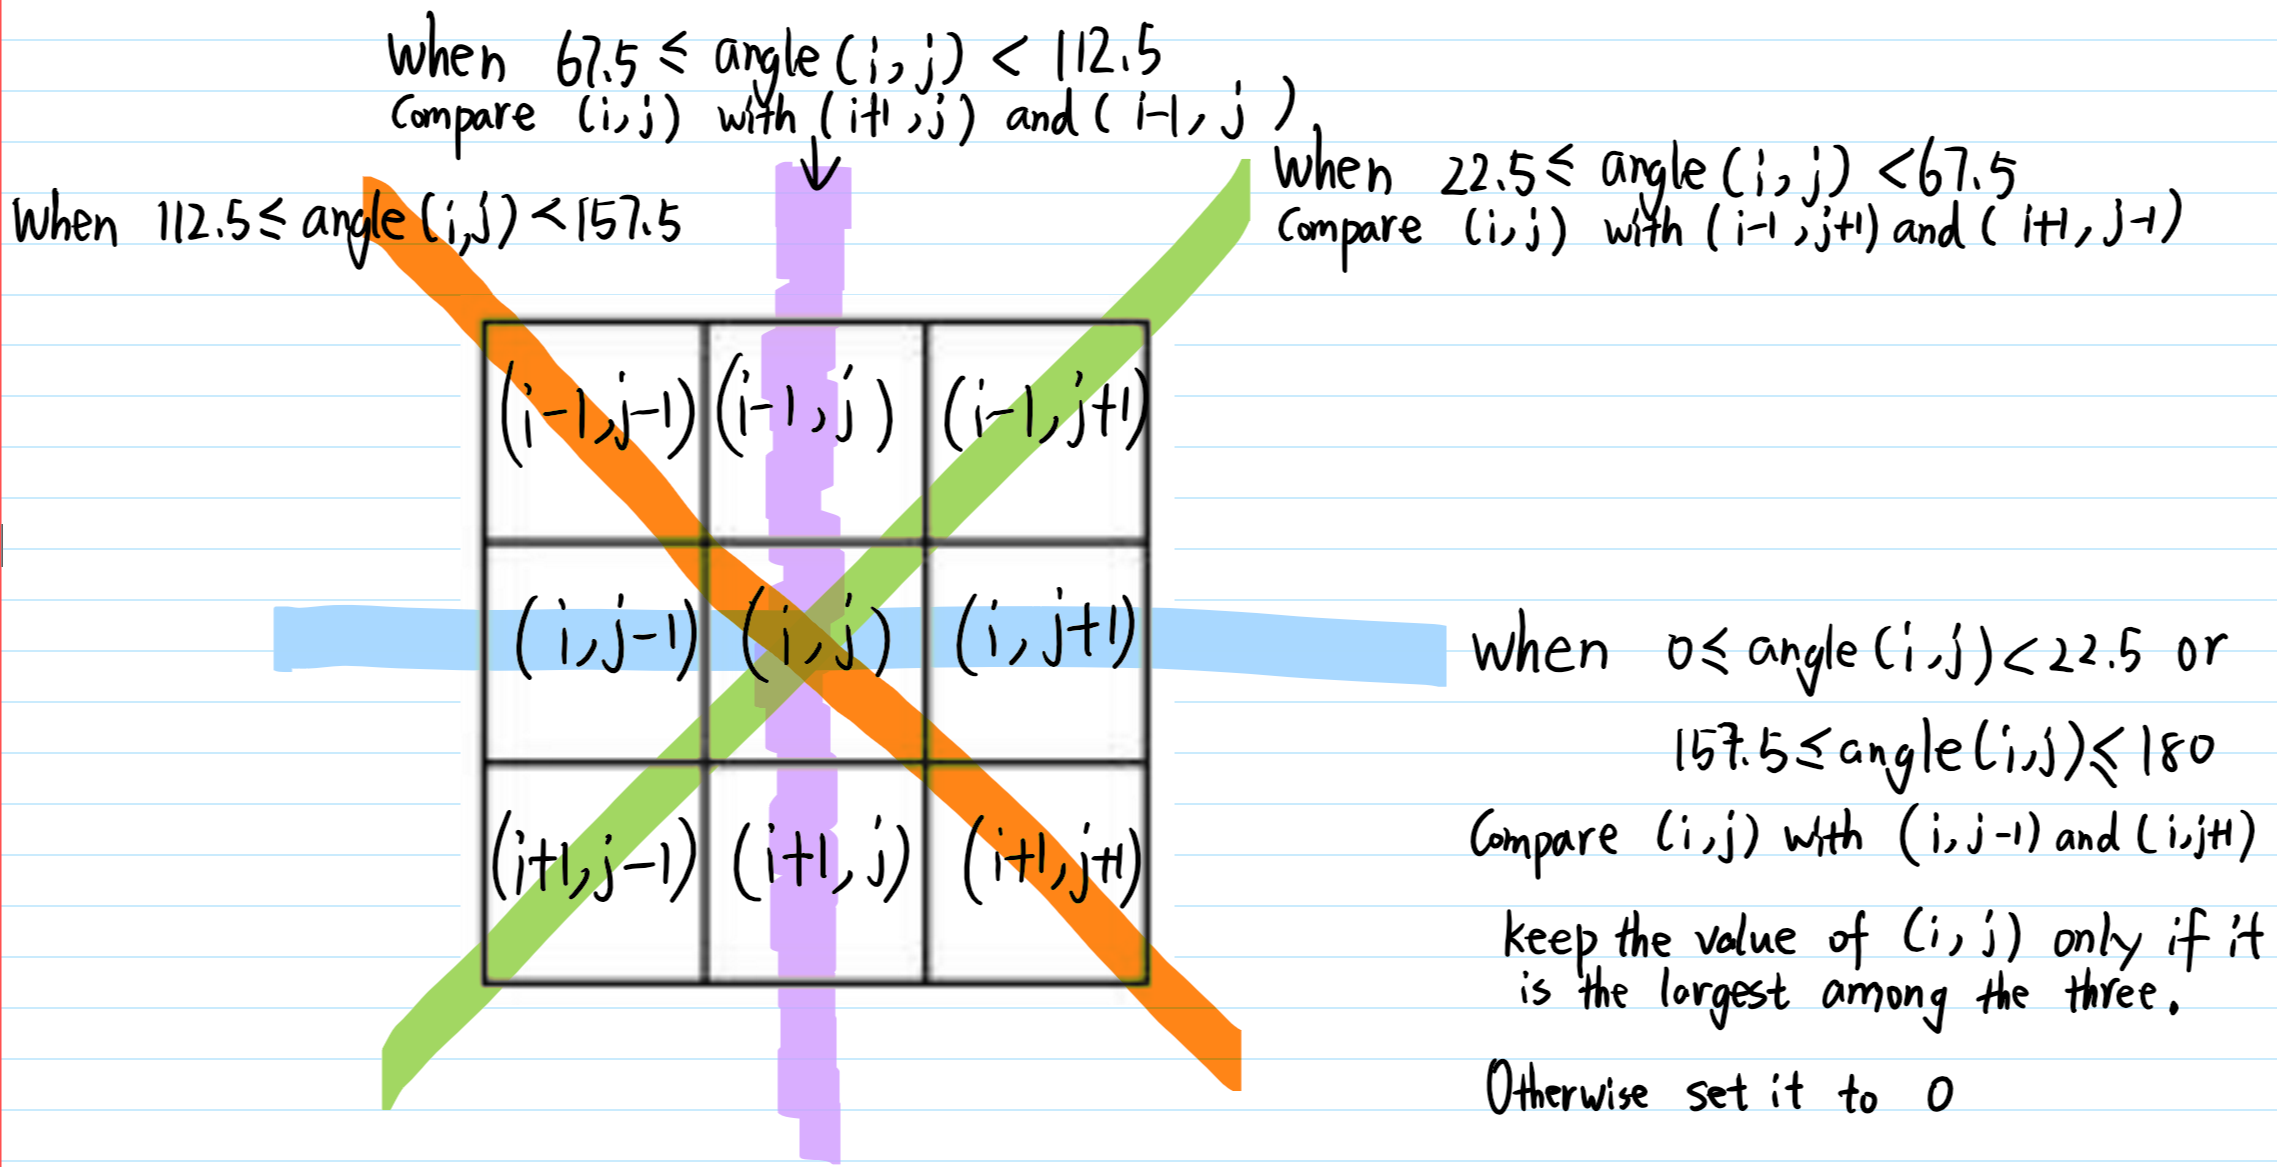 When 67.5 ≤ angle (i, j) < 112.5
Compare (i, j) with (i+1, j) and (i-1, j)
When 112.5 ≤ angle (i, j) < 157.5
When 22.5 ≤ angle (i, j) < 67.5
Compare (i, j) with (i-1, j+1) and (i+1, j-1)
(i-1, j-1) (i-1, j) (i-1, j+1)
(i, j-1) (i, j) (i, j+1)
(i+1, j-1) (i+1, j) (i+1, j+1)
When 0 ≤ angle (i, j) < 22.5 or
157.5 ≤ angle (i, j) ≤ 180
Compare (i, j) with (i, j-1) and (i, j+1)
keep the value of (i, j) only if it
is the largest among the three.
Otherwise set it to 0